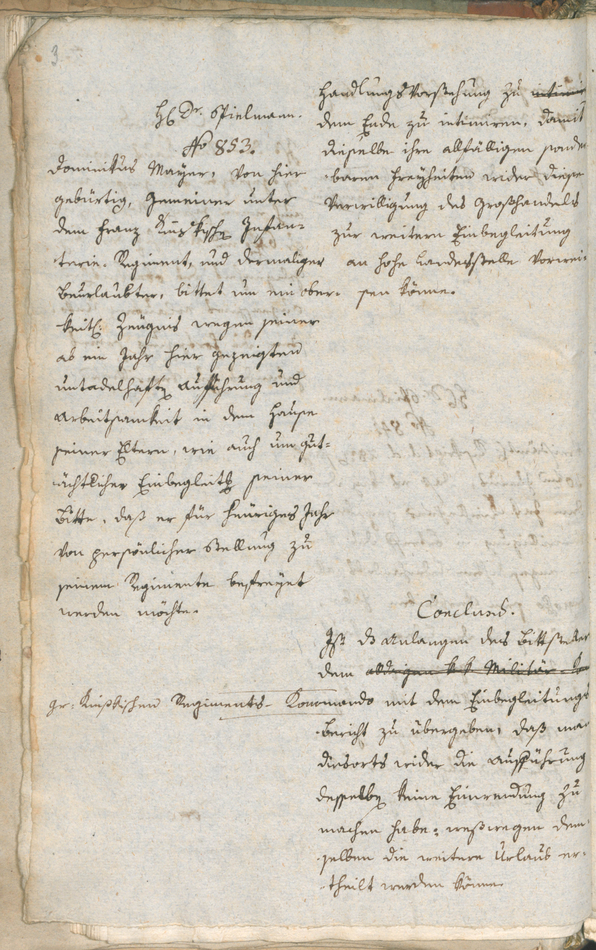 3.
H. Dr. Spielmann.
No 853.
Dominikus Mayer, von hier
gebürtig, Gemeiner unter
dem Franz Kinz'kisch. Infan-
terie-Regiment, und dermaliger
Beurlaubter, bittet um ein ober-
keitl. Zeugnis wegen seiner
ab ein Jahr hier gezeigten
untadelhaften Aufführung und
Arbeitsamkeit in dem Hause
seiner Eltern, wie auch um gut-
ächtlicher Einbegleitung seiner
Bitte, daß er für heüriges Jahr
von persönlicher Stellung zu
seinem Regimente befreyet
werden möchte.
Handlungs Vorstehung zu intimir
dem Ende zu intimiren, damit
dieselbe ihre allfälligen sonder
baren Freyheiten wider diese
Verwilligung des Großhandels
zur weitern Einbegleitung
an hohe Landesstelle vorwei-
sen könne.
Conclus.
Ist das Anlangen des Bittstellers
dem k k Militär
gr: Kinskischen Regiments-Kommando mit dem Einbegleitungs
Bericht zu übergeben, daß man
diesorts wider die Aufführung
desselben keine Einwendung zu
machen habe, weßwegen dem-
selben die weitere Urlaub er-
theilt werden könne.